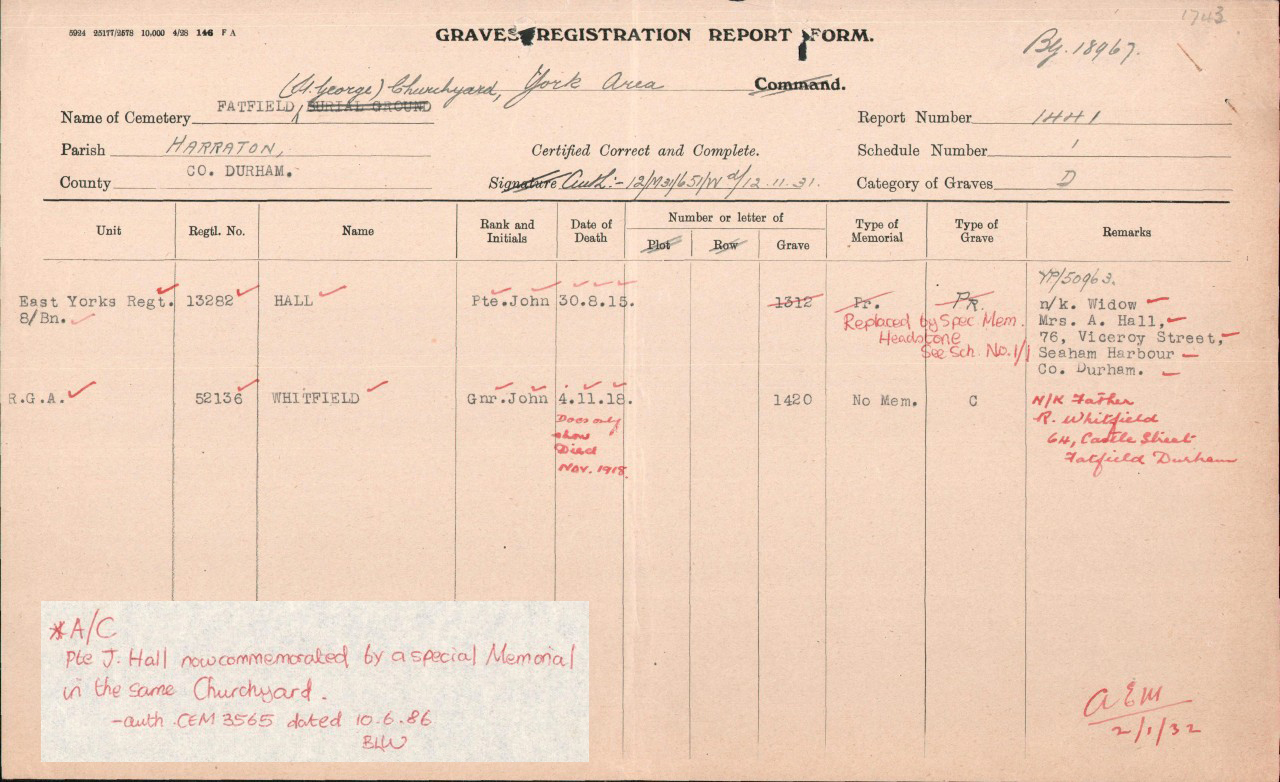 1743
5924 25177/2578 10,000 4/28 146 F A
GRAVES REGISTRATION REPORT FORM.
By. 18967.
(St. George) Churchyard, York Area Command.
Name of Cemetery FATFIELD BURIAL GROUND
Report Number 1441
Parish HARRATON,
Certified Correct and Complete.
Schedule Number 1
County CO. DURHAM.
Signature Auth:- 12/M31/651/W d/12.11.31.
Category of Graves D
Unit Regtl. No. Name Rank and Initials Date of Death Number or letter of Type of Memorial Type of Grave Remarks
Plot Row Grave
YP/50963.
East Yorks Regt. 13282 HALL Pte. John 30.8.15. 1312 Pr. PR. n/k. Widow
8/Bn. Replaced by Spec Mem. Mrs. A. Hall,
Headstone 76, Viceroy Street,
See Sch. No. 1/1 Seaham Harbour
Co. Durham.
R.G.A. 52136 WHITFIELD Gnr. John 4.11.18. 1420 No Mem. C N/K Father
Docs only R. Whitfield
show 64, Castle Street
Died Fatfield Durham
NOV. 1918.
*A/C
Pte J. Hall now commemorated by a special Memorial
in the same Churchyard.
-auth CEM 3565 dated 10.6.86
BLW
AEM
2/1/32